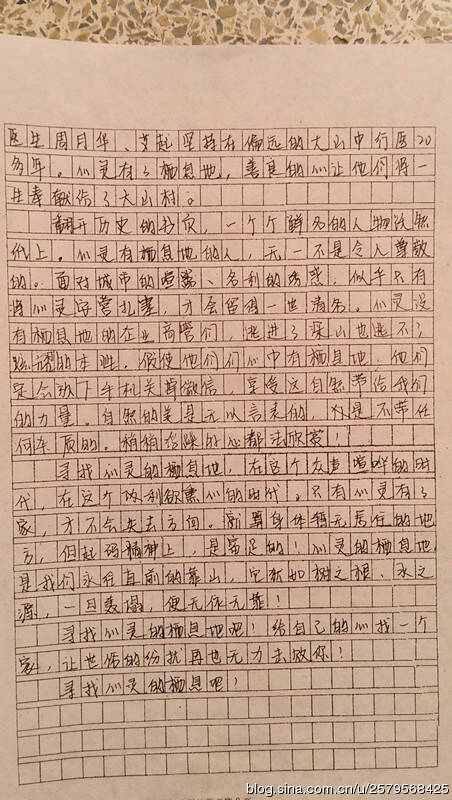 医生周月华、艾起坚持在偏远的大山中行医20
多年。心灵有了栖息地,善良的心让他们将一
生奉献给了大山村。
翻开历史的书页,一个个鲜名的人物跃然
纸上。心灵有栖息地的人,无一不是令人尊敬
的。面对城市的喧嚣、名利的诱惑,似乎只有
将心灵安营扎寨,才会留得一世清名。心灵没
有栖息地的企业高管们,逃进了深山也逃不了
的本性。假使他们心中有栖息地,他们
定会放下手机关掉微信,享受这自然带给我们
的力量。自然的美是无以言表的,是不带任
何杂质的。稍稍浮躁的心都去欣赏!
寻找心灵的栖息地,在这个众声喧哗的时
代,在这个以利欲熏心的时代。只有心灵有了
家,才不会失去方向。就算身体稍无居住的地
方,但起码精神上,是富足的!心灵的栖息地,
是我们永往直前的靠山,它犹如树之根、水之
源,一旦轰塌,便无依无靠!
寻找心灵的栖息地吧!给自己的心找一个
家,让世俗的纷扰再也无力去放你!
寻找心灵的栖息吧!
blog.sina.com.cn/u/2579568425